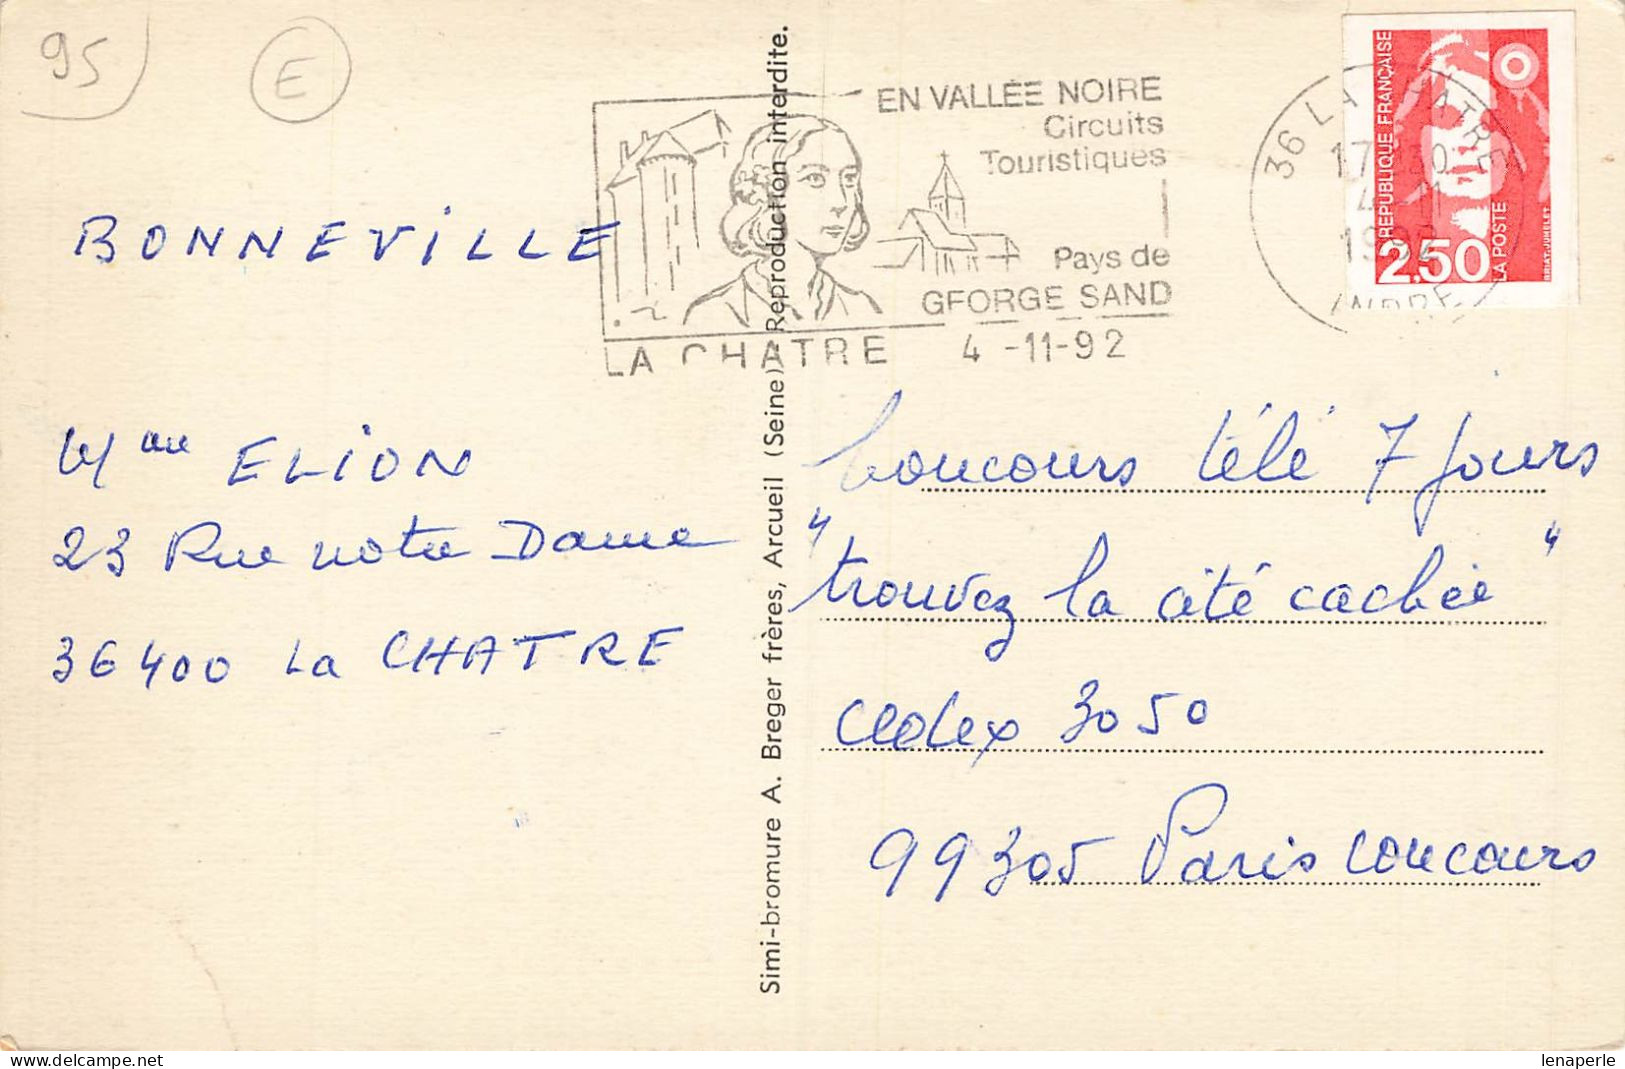 95
E
EN VALLÉE NOIRE
Circuits
Touristiques
Pays de
GEORGE SAND
LA CHATRE 4-11-92
36 LA CHATRE
17H30
4-11
1992
INDRE
RÉPUBLIQUE FRANÇAISE
2,50
LA POSTE
BRIAT-JUMELET
BONNEVILLE
Mme ELION
23 Rue notre Dame
36400 La CHATRE
Simi-bromure A. Breger frères, Arcueil (Seine) Reproduction interdite.
Concours télé 7 jours
"trouvez la cité cachée"
cedex 3050
99305 Paris concours
lenaperle